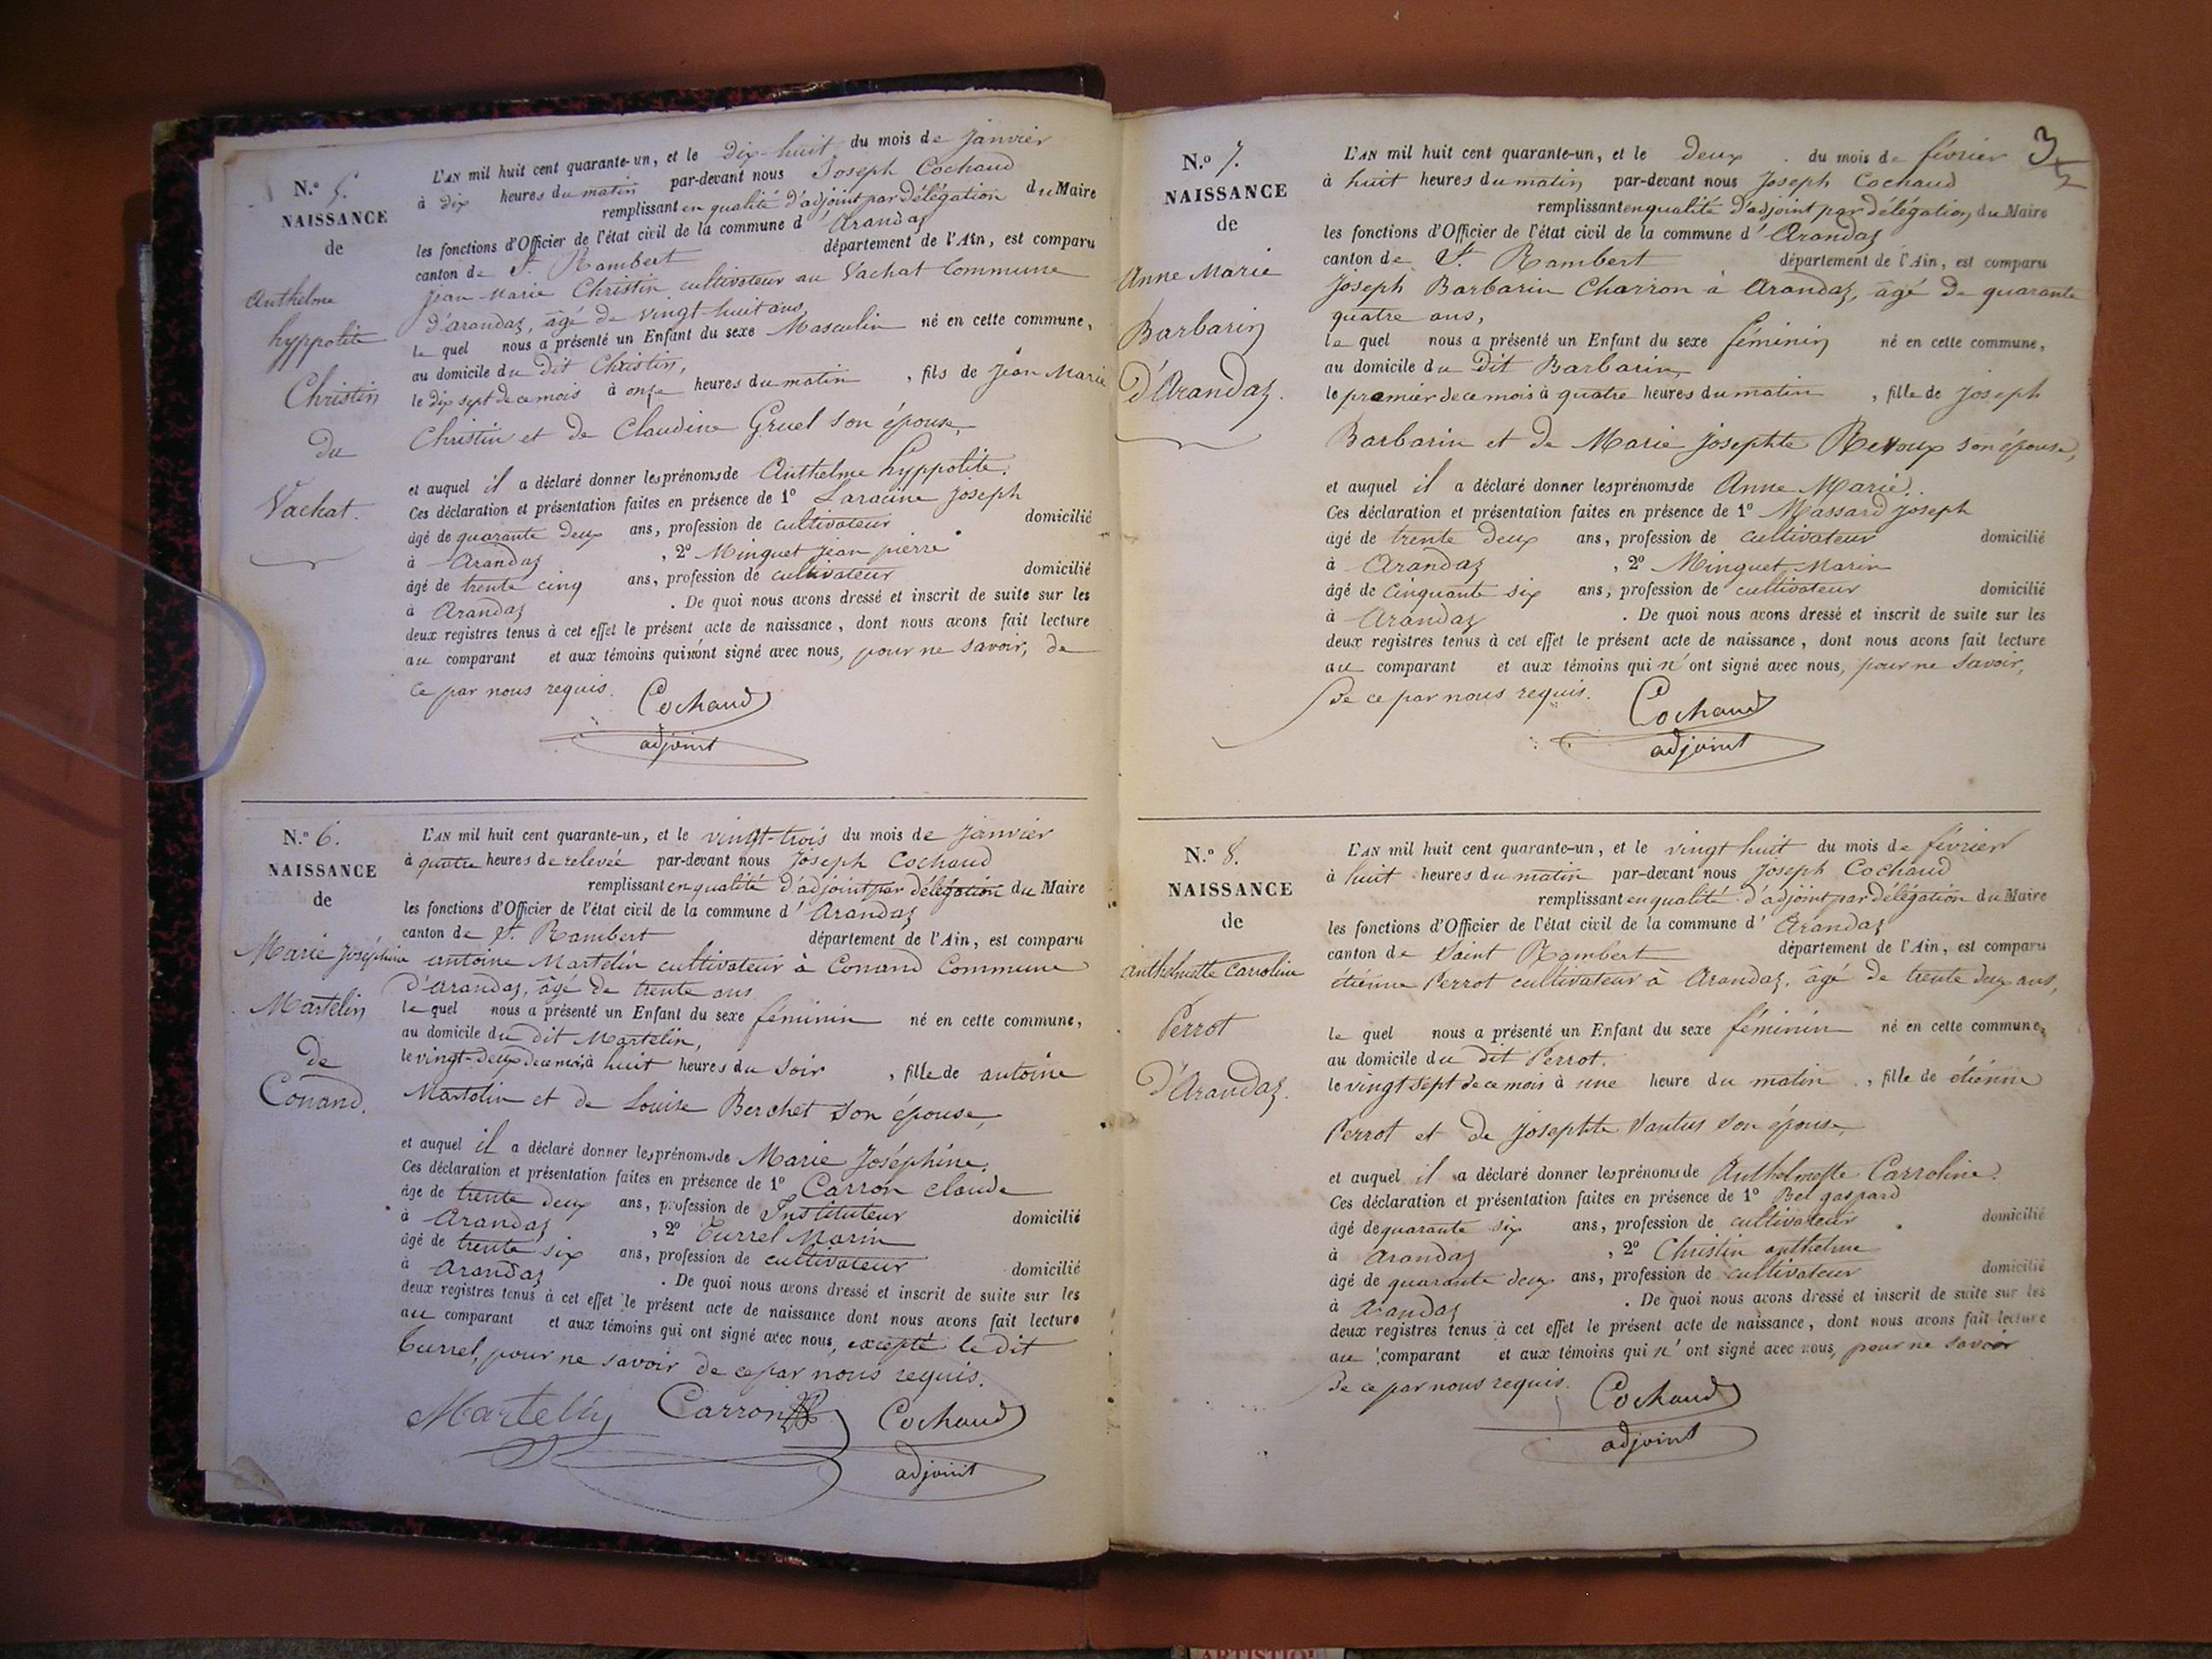 N.o 5.
NAISSANCE
de
Anthelme
hyppolite
Christin
du
Vachat.
L'AN mil huit cent quarante-un, et le dix-huit du mois de janvier
à dix heures du matin par-devant nous Joseph Cochaud
remplissant en qualité d'adjoint par délégation du Maire
les fonctions d'Officier de l'état civil de la commune d'Arandaz
canton de St. Rambert département de l'Ain, est comparu
jean Marie Christin cultivateur au Vachat Commune
d'arandaz, âgé de vingt-huit ans,
le quel nous a présenté un Enfant du sexe Masculin né en cette commune,
au domicile du dit Christin,
le dix sept de ce mois à onze heures du matin, fils de jean Marie
Christin et de Claudine Gruel son épouse,
et auquel il a déclaré donner les prénoms de Anthelme hyppolite.
Ces déclaration et présentation faites en présence de 1° Laracine joseph
âgé de quarante deux ans, profession de cultivateur domicilié
à Arandaz, 2° Minguet jean pierre
âgé de trente cinq ans, profession de cultivateur domicilié
à Arandaz. De quoi nous avons dressé et inscrit de suite sur les
deux registres tenus à cet effet le présent acte de naissance, dont nous avons fait lecture
au comparant et aux témoins qui n'ont signé avec nous, pour ne savoir, de
ce par nous requis.
Cochaud
adjoint
N.o 6.
NAISSANCE
de
Marie Joséphine
Martelin
de
Conand.
L'AN mil huit cent quarante-un, et le vingt-trois du mois de janvier
à quatre heures de relevée par-devant nous Joseph Cochaud
remplissant en qualité d'adjoint par délégation du Maire
les fonctions d'Officier de l'état civil de la commune d'Arandaz
canton de St. Rambert département de l'Ain, est comparu
antoine Martelin cultivateur à Conand Commune
d'arandaz, âgé de trente ans
le quel nous a présenté un Enfant du sexe féminin né en cette commune,
au domicile du dit Martelin,
le vingt-deux de ce mois à huit heures du soir, fille de antoine
Martelin et de Louise Berchet son épouse,
et auquel il a déclaré donner les prénoms de Marie Joséphine.
Ces déclaration et présentation faites en présence de 1° Carron claude
âgé de trente deux ans, profession de Instituteur domicilié
à Arandaz, 2° Turrel Marin
âgé de trente six ans, profession de cultivateur domicilié
à Arandaz. De quoi nous avons dressé et inscrit de suite sur les
deux registres tenus à cet effet le présent acte de naissance dont nous avons fait lecture
au comparant et aux témoins qui ont signé avec nous, excepté le dit
Turrel, pour ne savoir de ce par nous requis.
Martelin Carron Cochaud
adjoint
3
N.o 7.
NAISSANCE
de
Anne Marie
Barbarin
d'Arandaz.
L'AN mil huit cent quarante-un, et le deux du mois de février
à huit heures du matin par-devant nous Joseph Cochaud
remplissant en qualité d'adjoint par délégation du Maire
les fonctions d'Officier de l'état civil de la commune d'Arandaz
canton de St. Rambert département de l'Ain, est comparu
Joseph Barbarin Charron à Arandaz, âgé de quarante
quatre ans,
le quel nous a présenté un Enfant du sexe féminin né en cette commune,
au domicile du dit Barbarin,
le premier de ce mois à quatre heures du matin, fille de joseph
Barbarin et de Marie josephte son épouse,
et auquel il a déclaré donner les prénoms de Anne Marie.
Ces déclaration et présentation faites en présence de 1° Massard joseph
âgé de trente deux ans, profession de cultivateur domicilié
à Arandaz, 2° Minguet Marin
âgé de Cinquante six ans, profession de cultivateur domicilié
à Arandaz. De quoi nous avons dressé et inscrit de suite sur les
deux registres tenus à cet effet le présent acte de naissance, dont nous avons fait lecture
au comparant et aux témoins qui n'ont signé avec nous, pour ne savoir,
de ce par nous requis.
Cochaud
adjoint
N.o 8.
NAISSANCE
de
anthelmette Carroline
Perrot
d'Arandaz.
L'AN mil huit cent quarante-un, et le vingt huit du mois de février
à huit heures du matin par-devant nous Joseph Cochaud
remplissant en qualité d'adjoint par délégation du Maire
les fonctions d'Officier de l'état civil de la commune d'Arandaz
canton de Saint Rambert département de l'Ain, est comparu
étienne Perrot cultivateur à Arandaz, âgé de trente deux ans,
le quel nous a présenté un Enfant du sexe féminin né en cette commune,
au domicile du dit Perrot.
le vingt sept de ce mois à une heure du matin, fille de étienne
Perrot et de josephte son épouse,
et auquel il a déclaré donner les prénoms de Anthelmette Carroline.
Ces déclaration et présentation faites en présence de 1° Bel gaspard
âgé de quarante six ans, profession de cultivateur domicilié
à Arandaz, 2° Christin anthelme
âgé de quarante deux ans, profession de cultivateur domicilié
à Arandaz. De quoi nous avons dressé et inscrit de suite sur les
deux registres tenus à cet effet le présent acte de naissance, dont nous avons fait lecture
au comparant et aux témoins qui n'ont signé avec nous, pour ne savoir
de ce par nous requis.
Cochaud
adjoint